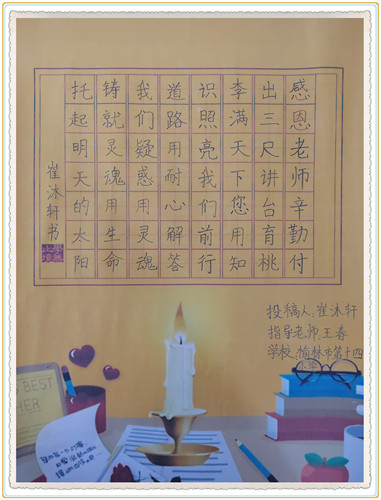 感恩老师辛勤付
出三尺讲台育桃
李满天下您用知
识照亮我们前行
道路用耐心解答
我们疑惑用灵魂
铸就灵魂用生命
托起明天的太阳
崔沐轩书
學無止境
投稿人.崔沐轩
指导老师.王春
学校.榆林市第十四
小学
BEST
HER